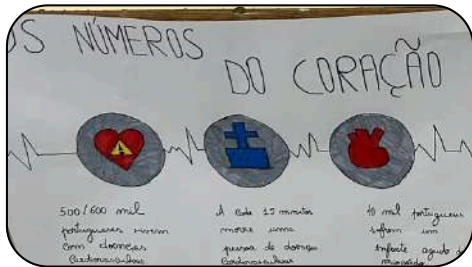 OS NÚMEROS
DO CORAÇÃO
500/600 mil
portugueses vivem
com doenças
Cardiovasculares
A cada 15 minutos
morre uma
pessoa de doenças
Cardiovasculares
10 mil portugueses
sofrem um
Infarte agudo do
miocárdio